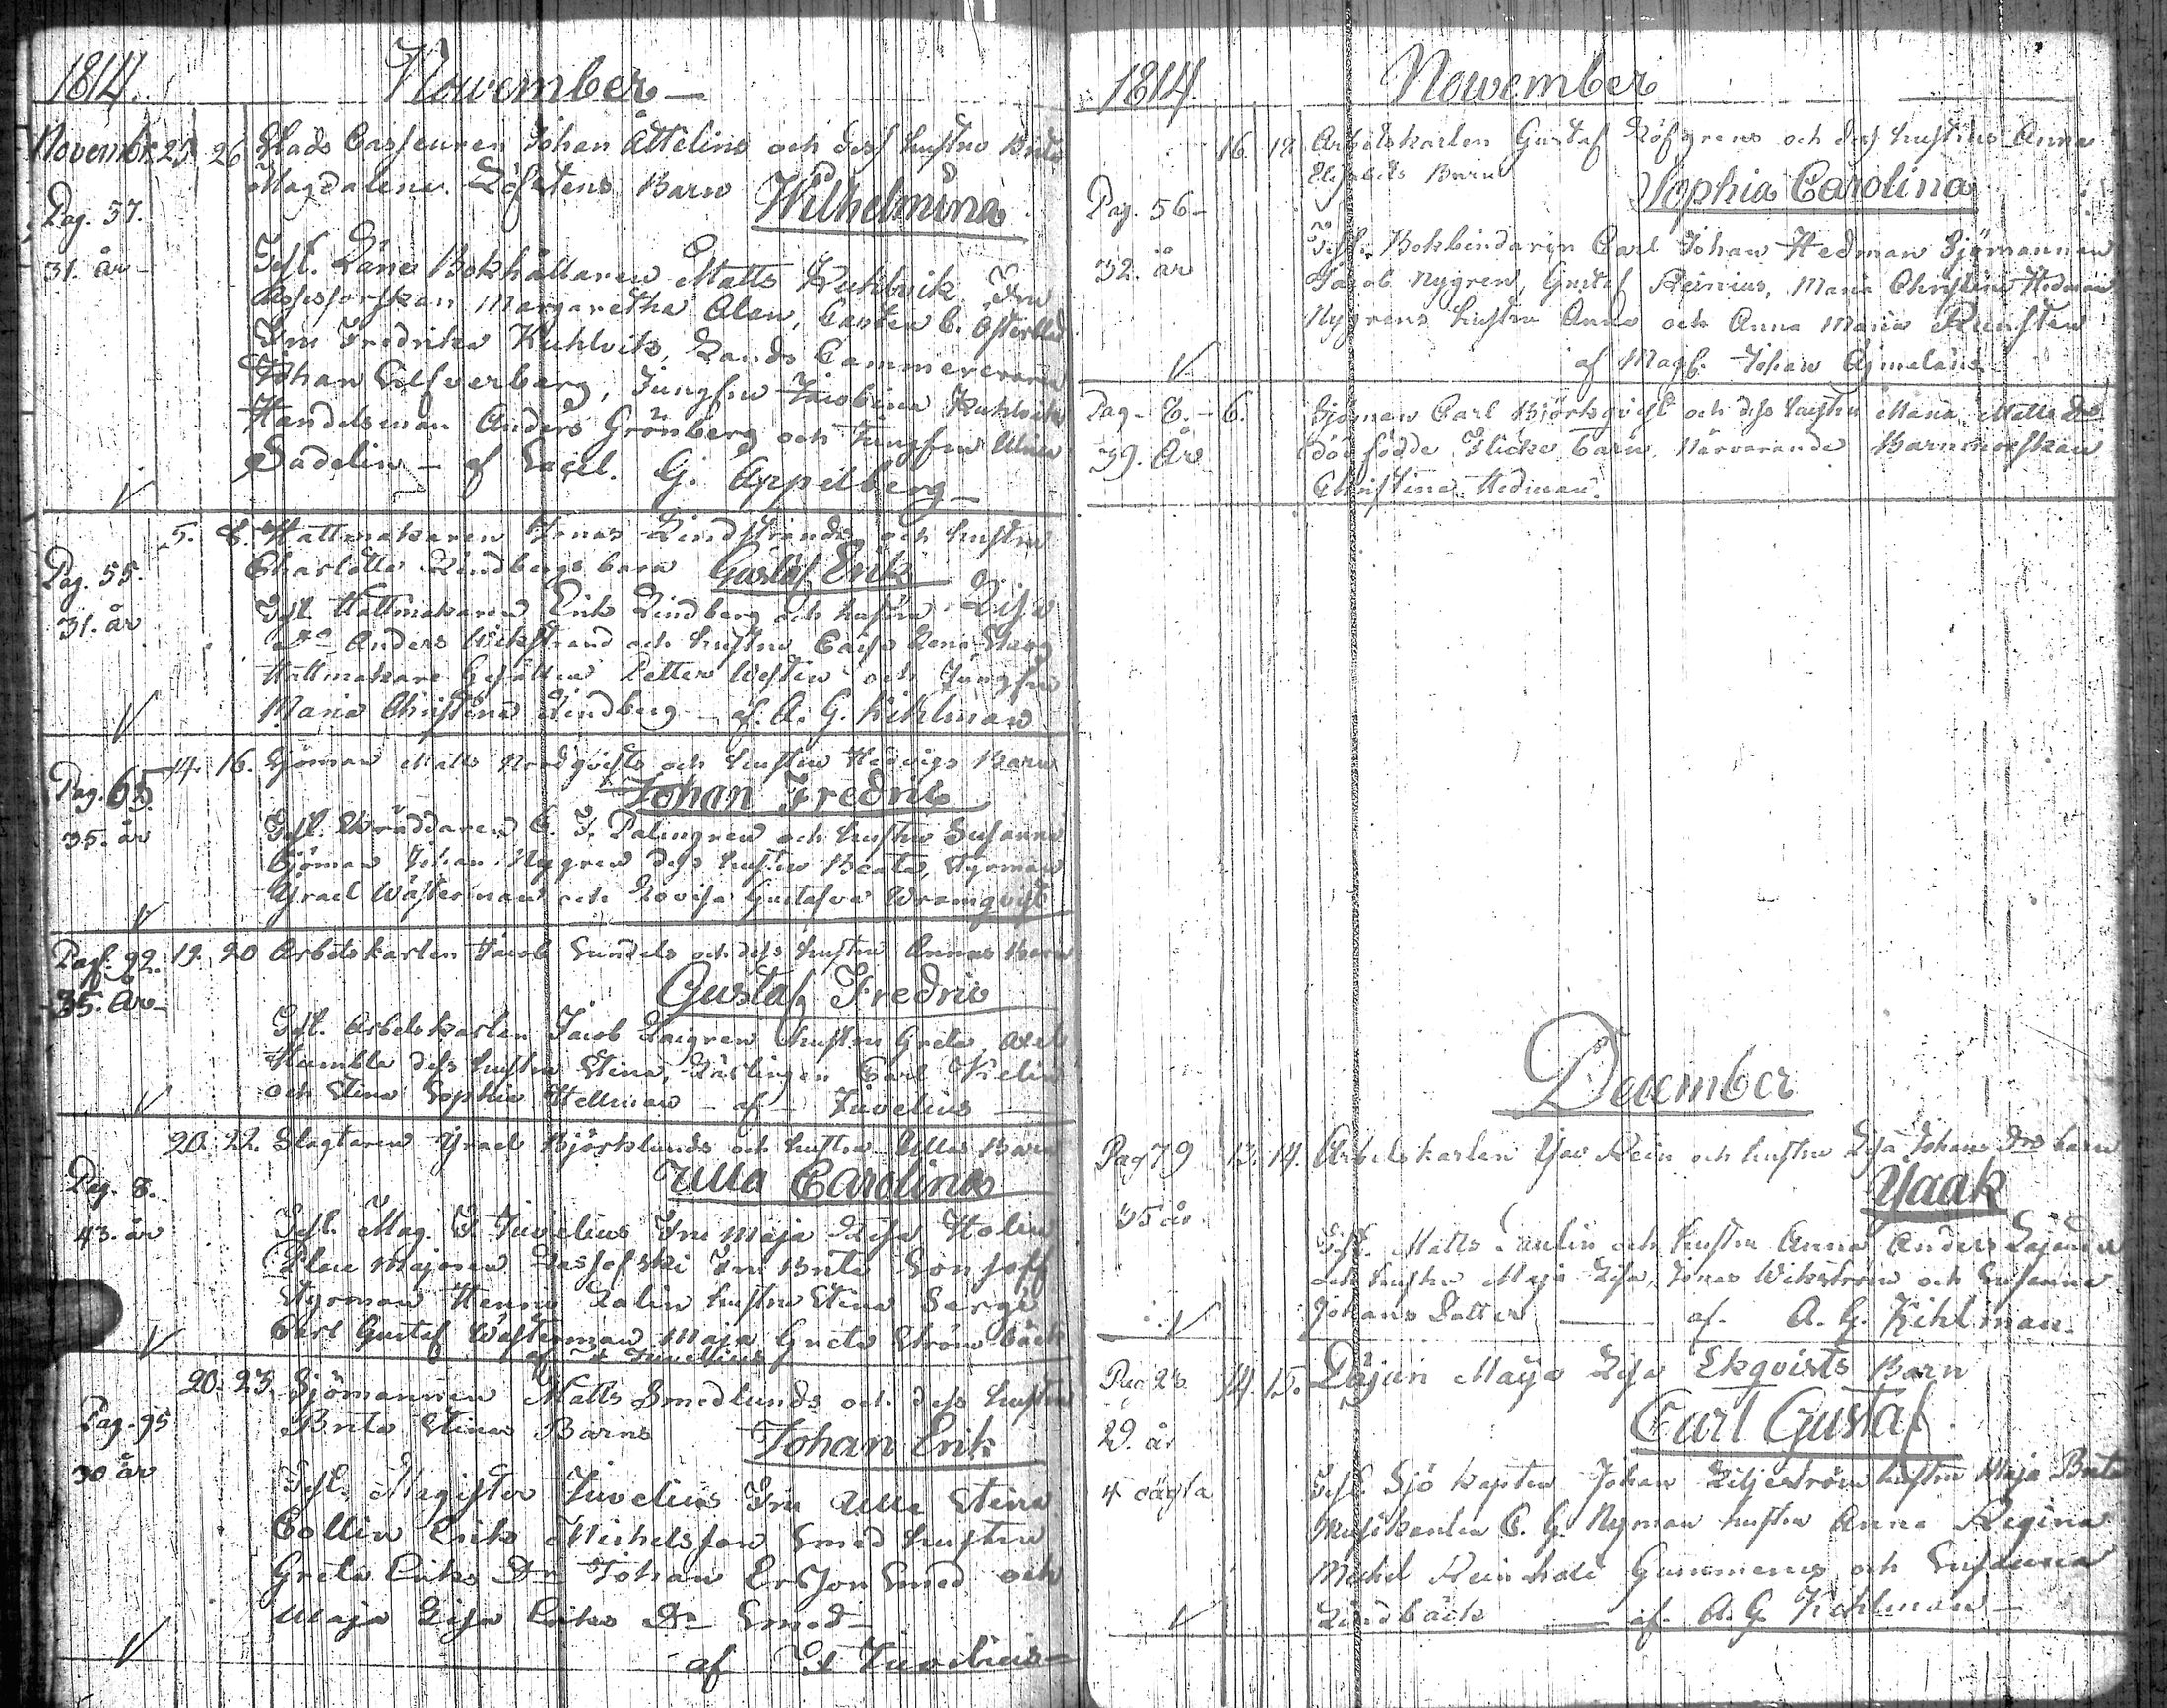 1814. November
Novembr. 25. 26 Stads Casseuren Johan Attelins och dess hustru Brita
Magdalena Löfstens Barn Wilhelmina
Pag. 57.
31. år
Test. Läns Bokhållaren Matts Kuhlvik, Fru
Assessorskan Margaretha Alan, Canten C. Österblad
Fru Fredrika Kuhlvik, Lands Cammereraren
Johan Silfverberg, Jungfru Jacobina Kuhlvik
Handelsman Anders Grönberg och Jungfru Ulrica
Sadelin af Sacel. G. Appelberg
5. 8. Hattmakaren Jonas Lindstrands och hustru
Charlotta Lindbergs barn Gustaf Erik
Pag. 55.
31. år
Test. Hattmakaren Erik Lindberg och hustru Lisa
Do Anders Wikstrand och hustru Caisa Lena
Hattmakare Gesällen Petter Westin och Jungfru
Maria Christina Lindberg af A. G. Kihlman
Pag. 65 14. 16. Sjöman Matts Nordqvists och hustru Hedvigs Barn
Johan Fredric
35. år
Test. Skräddaren C. F. Palmgren och hustru Susanna
Sjöman Johan Nygren dess hustru Beata, Styrman
Ysrael Wästerman och Lovisa Gustafva Wromqvist
Pag. 92. 19. 20 Arbetskarlen Jacob Sundels och dess hustru Annas Barn
Gustaf Fredric
35. År
Test. Arbetskarlen Jacob Laigren hustru Greta, Axel
Humble dess hustru Stina, Lärlingen Carl Kelin
och Stina Sophia Hellman af Juvelius
20. 22. Slagtaren Ysrael Björklunds och hustru Ullas Barn
Ulla Carolina
Pag. 8.
43. år
Test. Mag. F. Juvelius Fru Maja Lisa Holm
Place Majoren Fru Brita
Styrman Henric Dalin hustru Stina Serge
Carl Gustaf Wästerman Maja Greta Strömbäck
af F Juvelius
20. 23. Sjömannen Matts Smedlunds och dess hustru
Brita Stinas Barn Johan Erik
Pag. 95
30 år
Test. Magister Juvelius Fru Ulla Stina
Collin Eriks Michelsson Smed hustru
Greta Eriks Dr Johan Ersson Smed och
Maja Lisa Eriks Dr Smed
af F Juvelius
1814. November
16. 18 Arbetskarlen Gustaf Löfgrens och dess hustrus Anna
Elisabets Barn Sophia Carolina
Pag. 56
32. år
Test. Bokbindaren Carl Johan Hedman Sjömannen
Jacob Nygren, Gustaf Reinius, Maria Christina Hedman
Nygrens hustru Anna och Anna Maria Runsten
af Mag. Johan Ajmelaus
Pag. 6. Sjöman Carl Björkqvist och dess hustru Maria Matts Drs
39. År död födde Flicke barn. Närvarande Barnmorskan
Christina Hedman.
December
Pag 79 13. 14. Arbetskarlen Ysac Rein och hustru Lisa Johans Drs barn
Ysaak
35 år
Test. Matts Paulin och hustru Anna Anders
och hustru Maja Lisa, Jonas Wikström och Susanna
Johans Dotter af A. G. Kihlman
Pag 23 14. 15. Pigan Maja Lisa Ekqvists Barn
Carl Gustaf
29. år
oägta
Test. Sjö Kapten Johan Liljeström hustru Maja Brita
Musikanten C. G. Nyman hustru Anna Regina
Michel Reinhold Gummerus och Susanna
Lindbäck af A. G. Kihlman